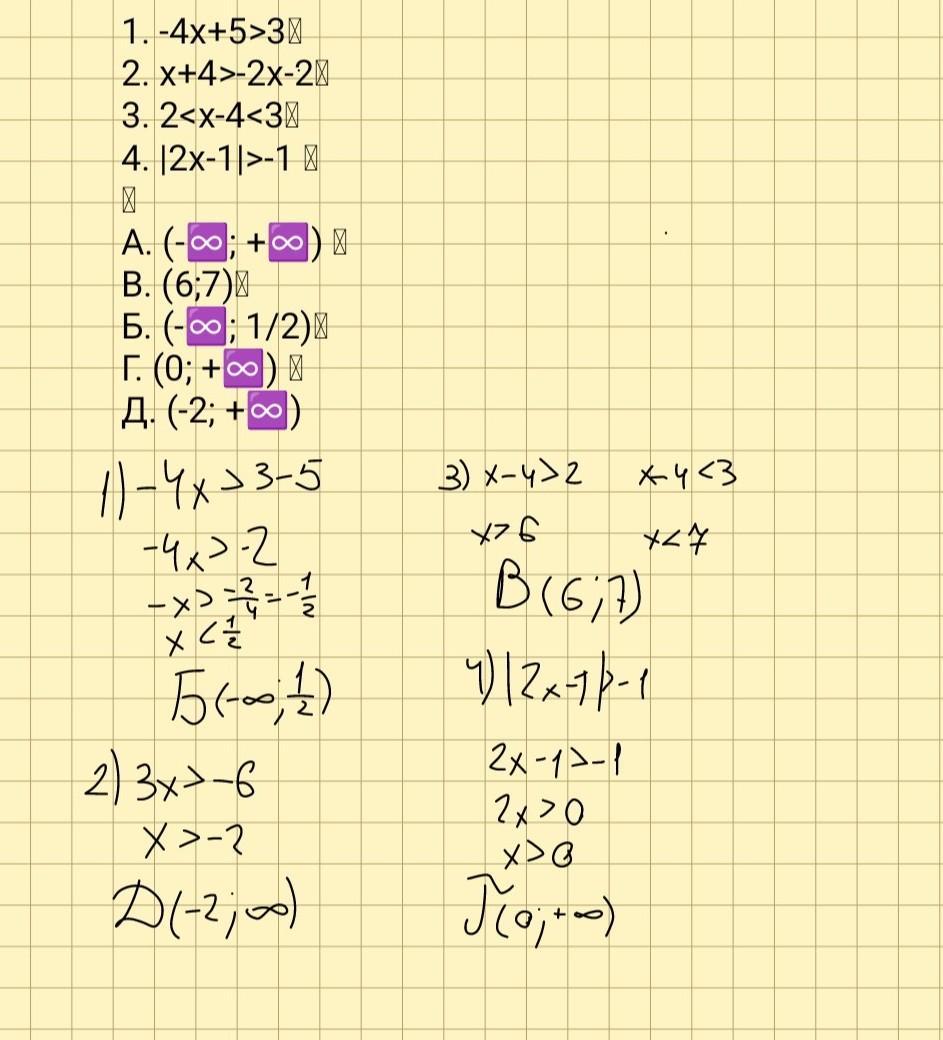 1. -4x+5>3
2. x+4>-2x-2
3. 2<x-4<3
4. |2x-1|>-1
А. (-∞; +∞)
В. (6;7)
Б. (-∞; 1/2)
Г. (0; +∞)
Д. (-2; +∞)
1) -4x>3-5
-4x>-2
-x>-2/4=-1/2
x<1/2
Б(-∞;1/2)
2) 3x>-6
x>-2
Д(-2;∞)
3) x-4>2 x-4<3
x>6 x<7
В(6;7)
4) |2x-1|>-1
2x-1>-1
2x>0
x>0
Г(0;+∞)